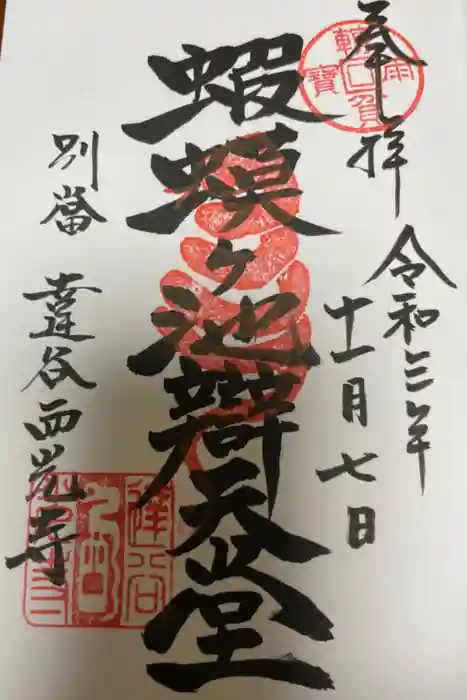 奉拝
令和三年
十一月七日
蝦蟆ヶ池辯天堂
別當 達谷西光寺